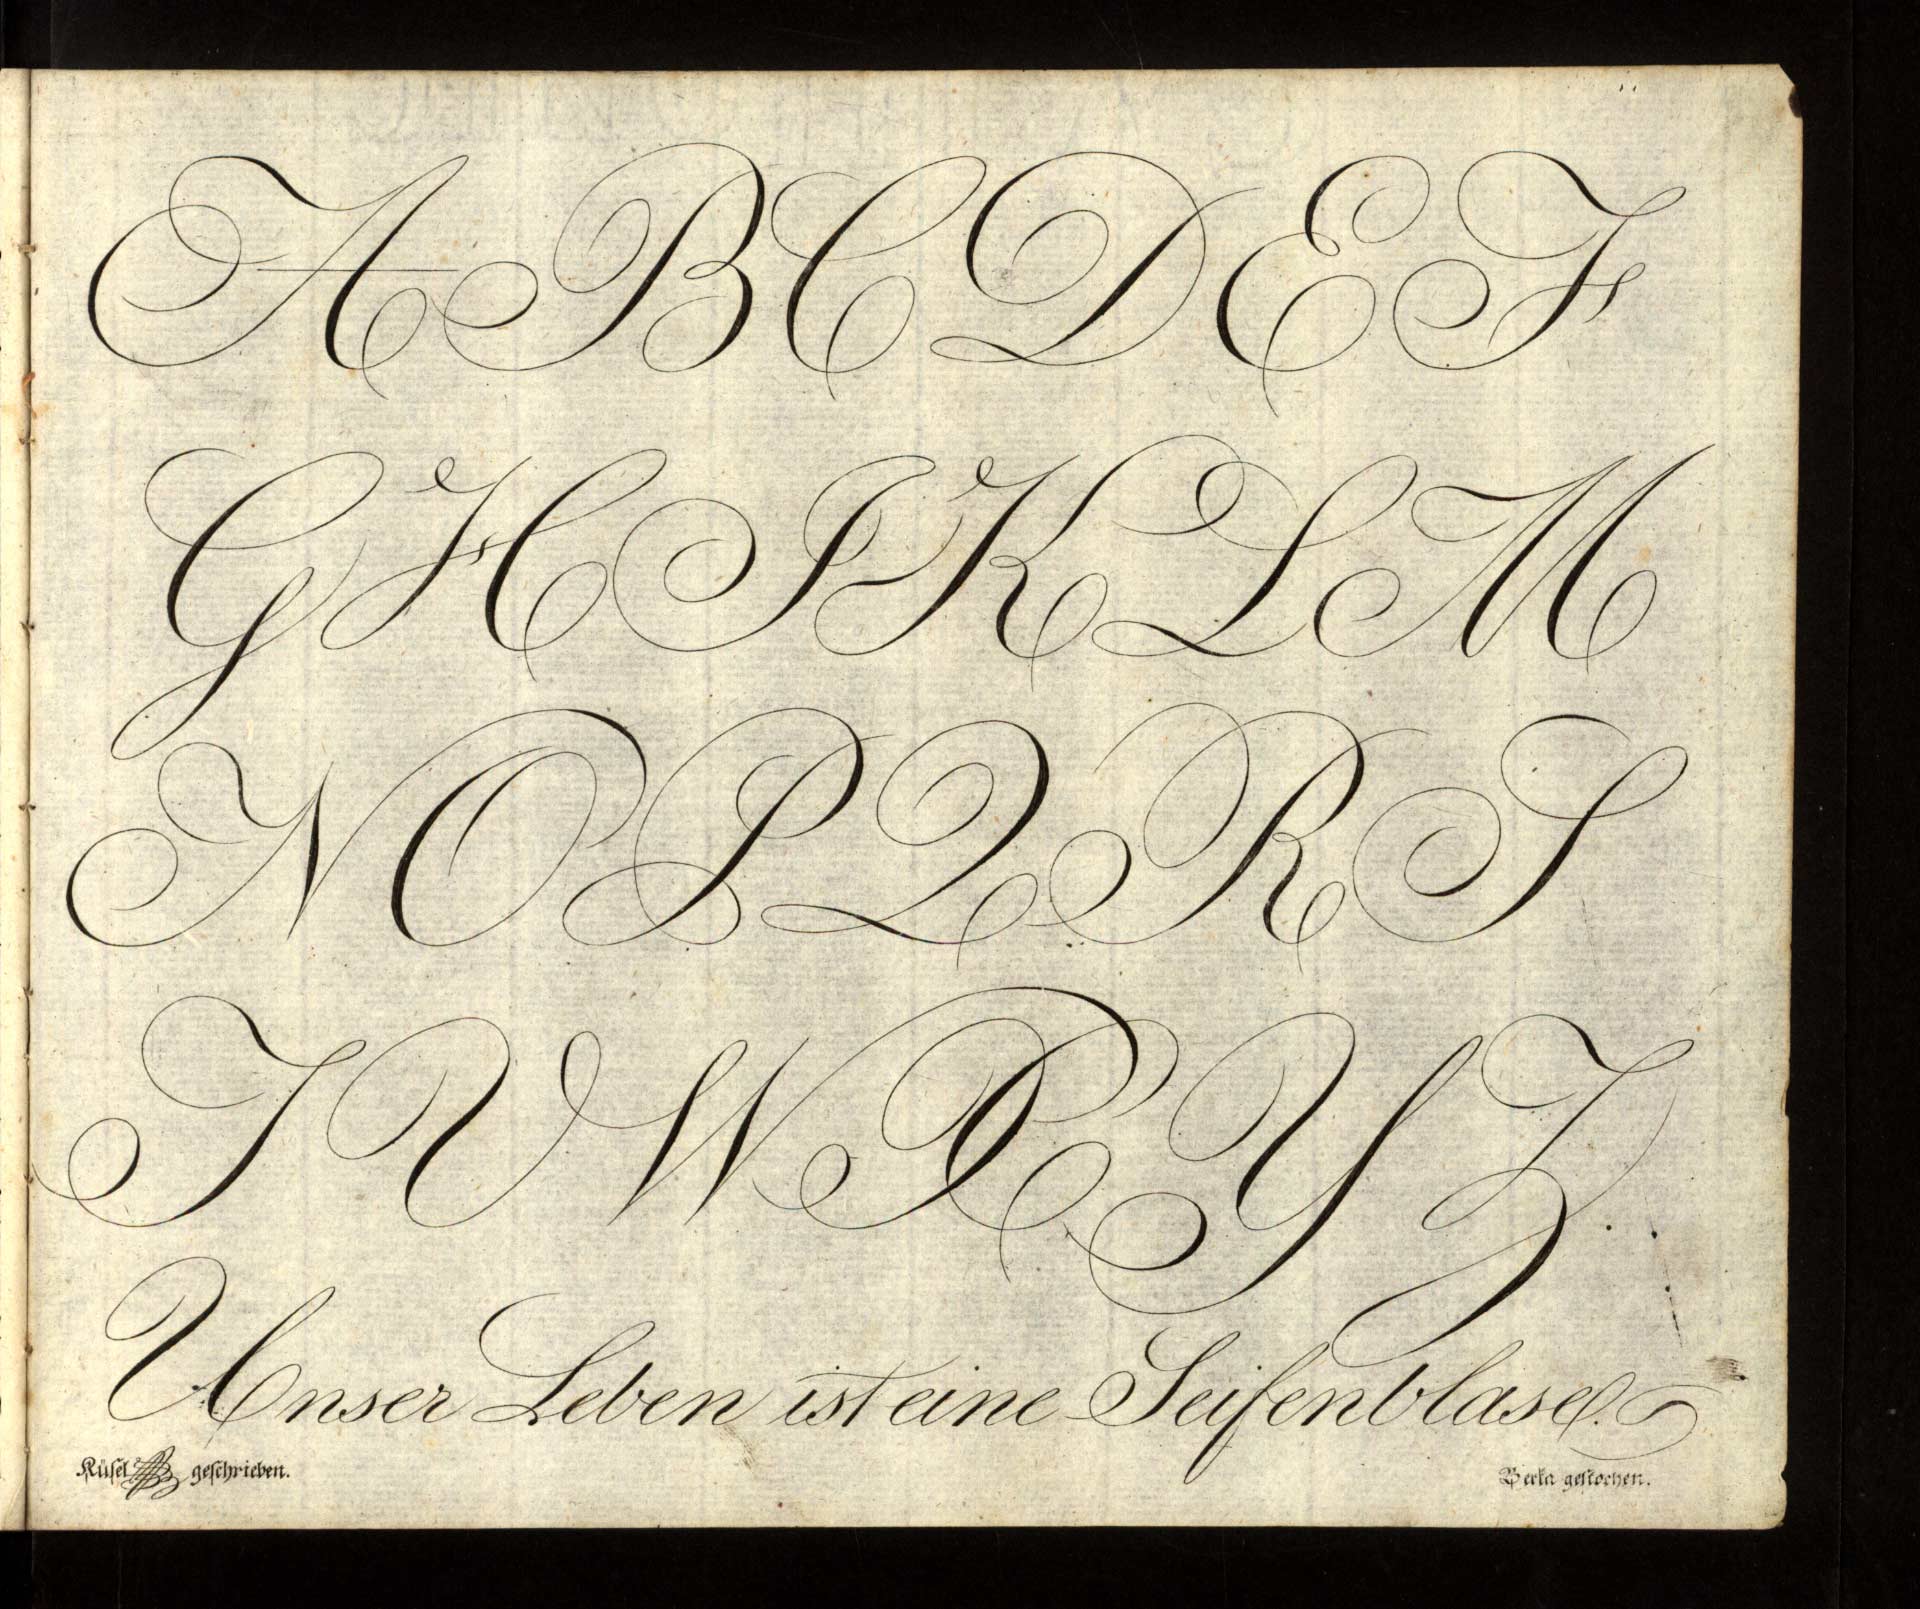 A B C D E F
G H I K L M
N O P Q R S
T V W X Y Z
Unser Leben ist eine Seifenblase.
Küsel geschrieben.
Berka gestochen.